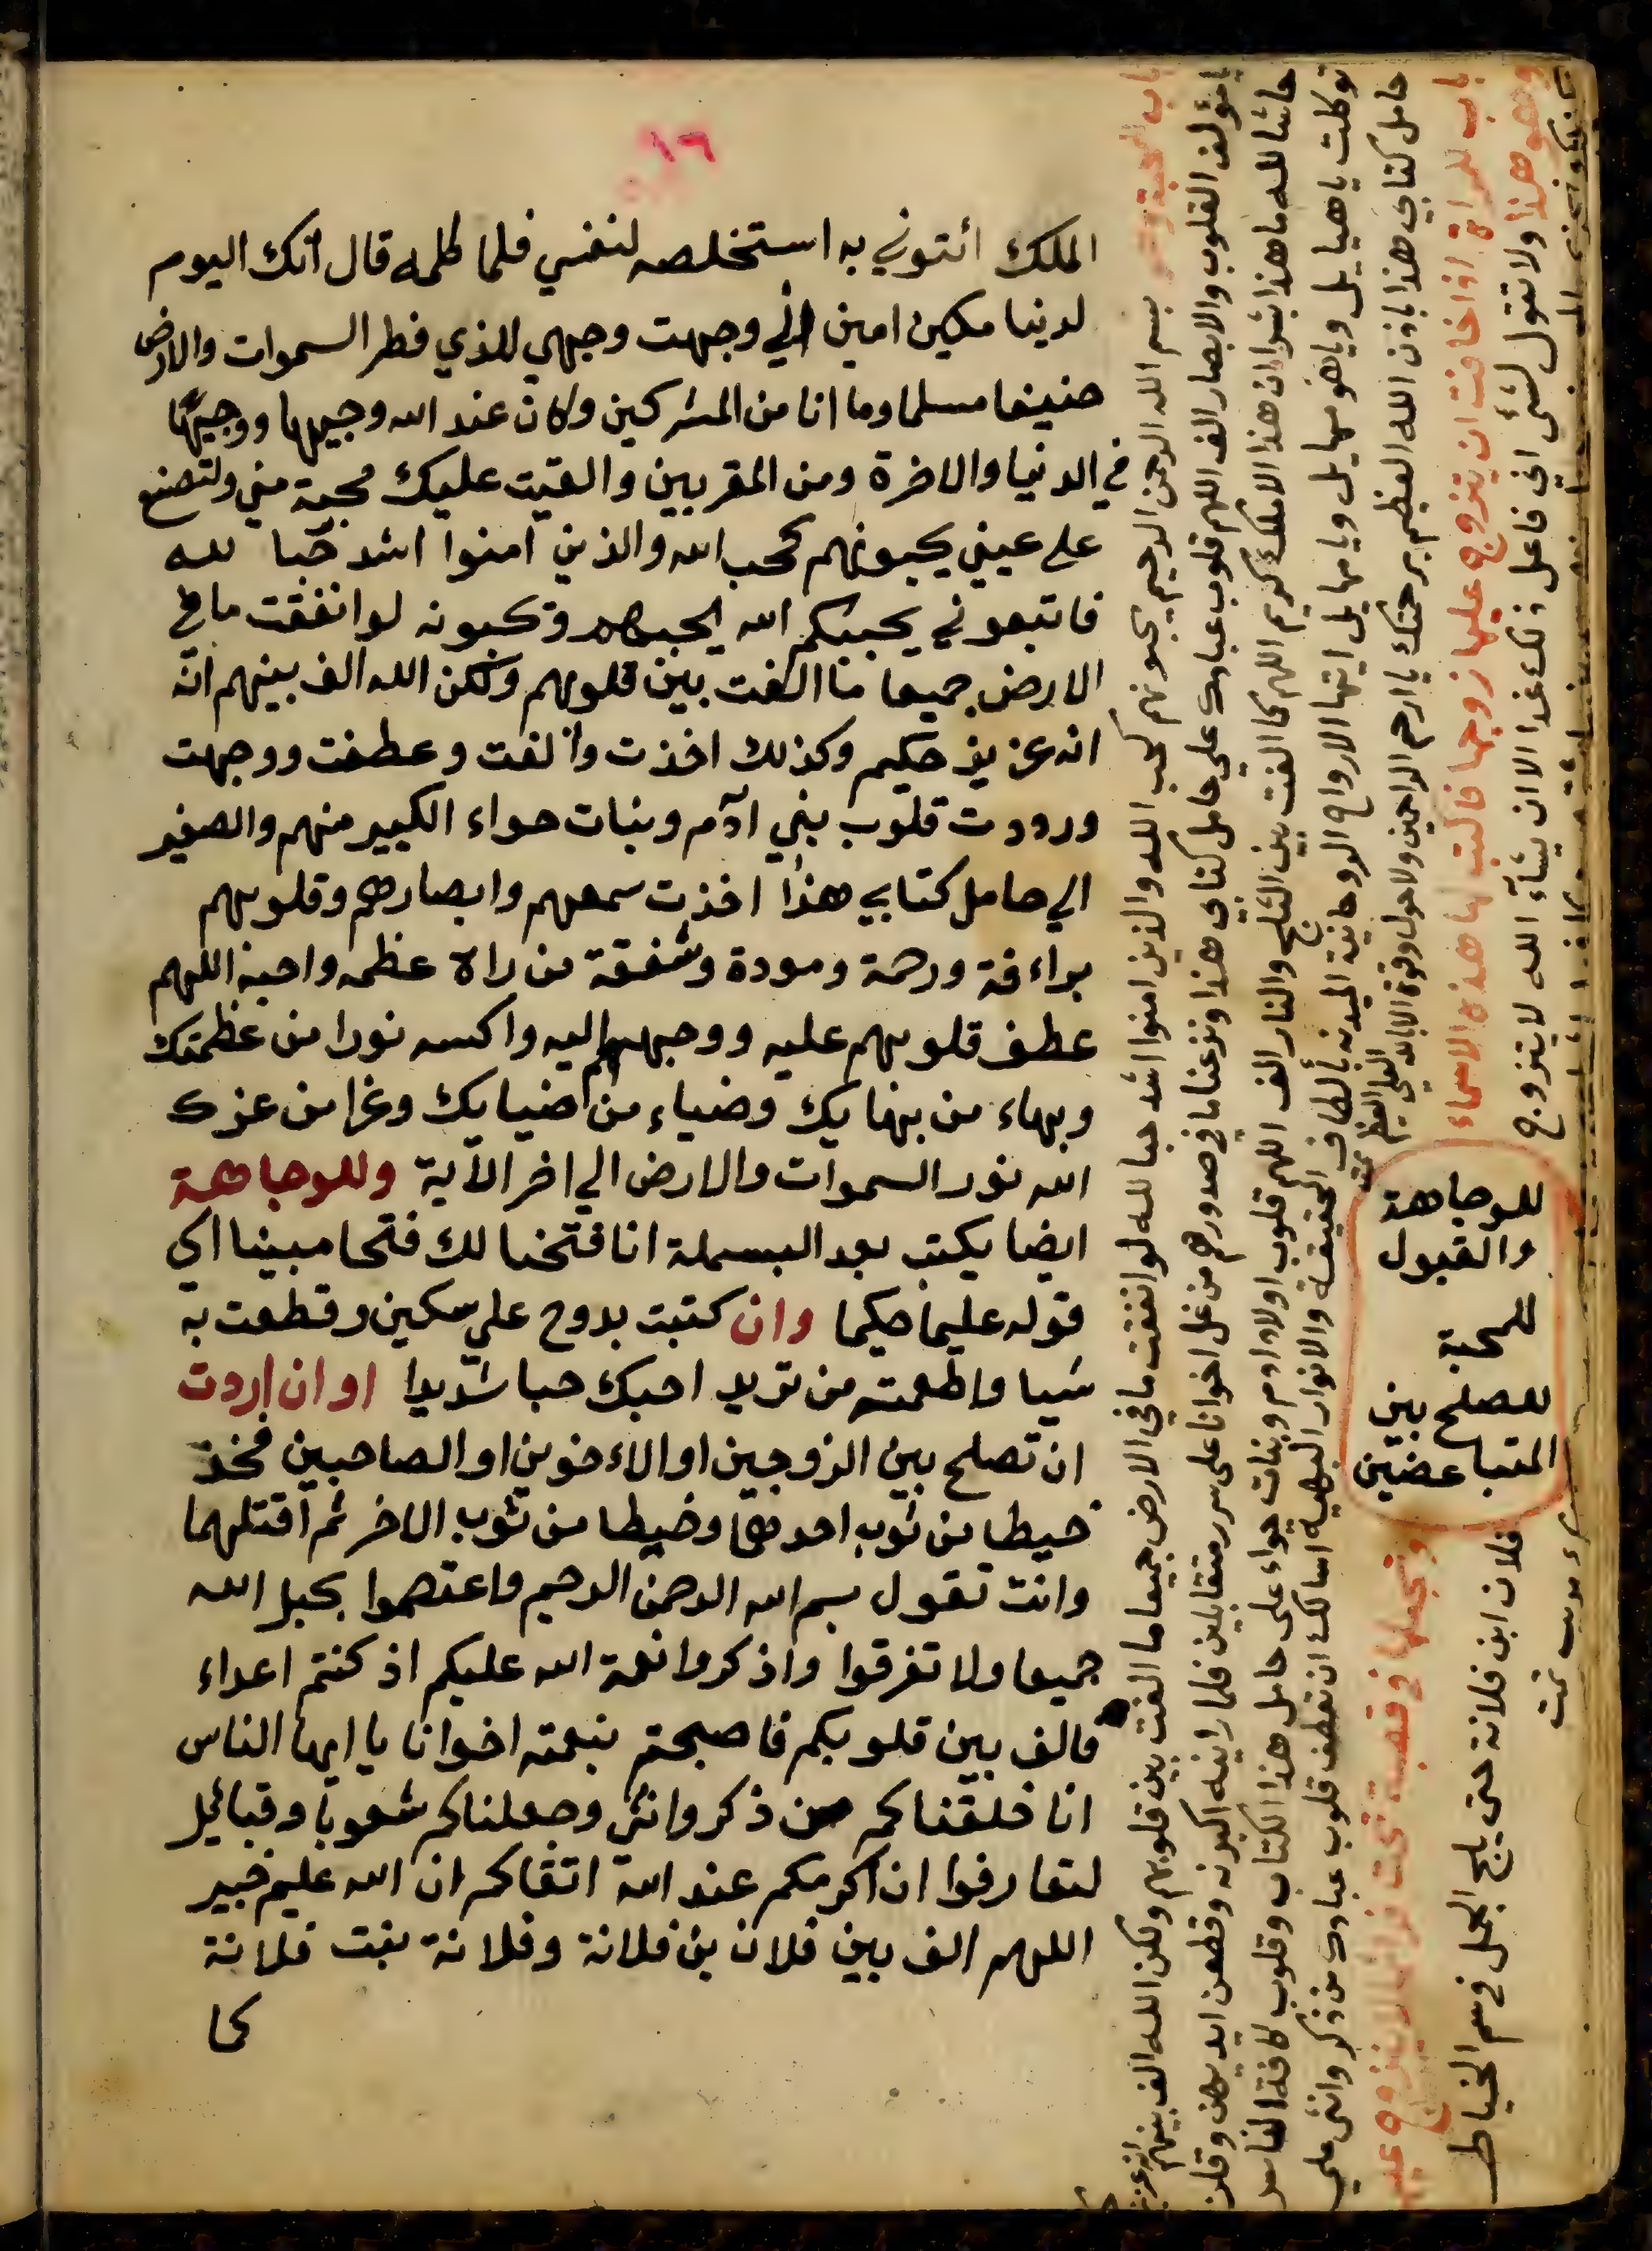 ١٦
الملك ائتوني به استخلصه لنفسي فلما كلمه قال انك اليوم
لدينا مكين امين اني وجهت وجهي للذي فطر السموات والارض
حنيفا مسلما وما انا من المشركين وكان عند الله وجيها ووجيها
في الدنيا والاخرة ومن المقربين والقيت عليك محبة مني ولتصنع
على عيني يحبونهم كحب الله والذين امنوا اشد حبا لله
فاتبعوني يحببكم الله يحبهم ويحبونه لو انفقت ما في
الارض جميعا ما الفت بين قلوبهم ولكن الله الف بينهم انه
انه عزيز حكيم وكذلك اخذت والفت وعطفت ووجهت
ورددت قلوب بني ادم وبنات حواء الكبير منهم والصغير
الي حامل كتابي هذا اخذت سمعهم وابصارهم وقلوبهم
براءفة ورحمة ومودة وشفقة من راه عظمه واحبه اللهم
عطف قلوبهم عليه ووجههم اليه واكسه نورا من عظمتك
وبهاء من بهايك وضياء من ضيايك وعزا من عزك
الله نور السموات والارض الي اخر الآية وللوجاهة
ايضا يكتب بعد البسملة انا فتحنا لك فتحا مبينا الى
قوله عليما حكيما وان كتبت بدوح على سكين وقطعت به
شيا واطعمته من تريد احبك حبا شديدا او ان اردت
ان تصلح بين الزوجين او الاخوين او الصاحبين فخذ
خيطا من ثوب احدهما وخيطا من ثوب الاخر ثم افتلهما
وانت تقول بسم الله الرحمن الرحيم واعتصموا بحبل الله
جميعا ولا تفرقوا واذكروا نعمة الله عليكم اذ كنتم اعداء
فالف بين قلوبكم فاصبحتم بنعمته اخوانا يا ايها الناس
انا خلقناكم من ذكر وانثى وجعلناكم شعوبا وقبائيل
لتعارفوا ان اكرمكم عند الله اتقاكم ان الله عليم خبير
اللهم الف بين فلان بن فلانة وفلانة بنت فلانة
كما
للوجاهة
والقبول
للمحبة
للصلح بين
المتباغضين
باب المحبة بسم الله الرحمن الرحيم يحبونهم كحب الله والذين امنوا اشد حبا لله لو انفقت ما في الارض جميعا ما الفت بين قلوبهم ولكن الله الف بينهم انه عزيز
يا مؤلف القلوب والابصار الف اللهم قلوب عبادك على حامل كتابي هذا ونزعنا ما في صدورهم من غل اخوانا على سرر متقابلين فلما راينه اكبرنه وقطعن ايديهن وقلن
حاشا لله ما هذا بشرا ان هذا الا ملك كريم اللهم كما الفت بين الثلج والنار الف اللهم قلوب اولاد ادم وبنات حواء على حامل هذا الكتاب وقلوب كافة الناس
توكلت يا هيايل ويا مهيايل ايتها الارواح الروحانية بألطاف الحقيقة والانوار البهية اسالك ان تعطف قلوب عبادك من ذكر وانثى على
حامل كتابي هذا باذن الله العظيم برحمتك يا ارحم الراحمين ولا حول ولا قوة الا بالله العلي العظيم تمت
باب للمراة اذا خافت ان يتزوج عليها زوجها فاكتب لها هذه الاسماء وتجعلها في قصبة تحت لا يتزوج عليها
وهو هذا ولا تقول لشئ اني فاعل ذلك غدا الا ان يشآء الله لا يتزوج فلان ابن فلانة حتى يلج الجمل في سم الخياط